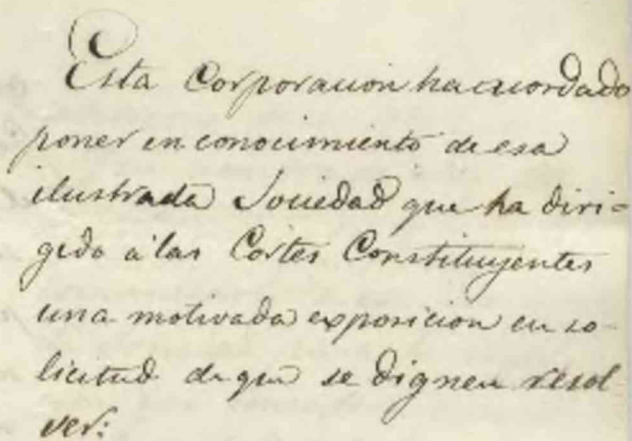 Esta Corporacion ha acordado
poner en conocimiento de esa
ilustrada Sociedad que ha diri-
gido á las Cortes Constituyentes
una motivada exposicion en so-
licitud de que se dignen resol-
ver: